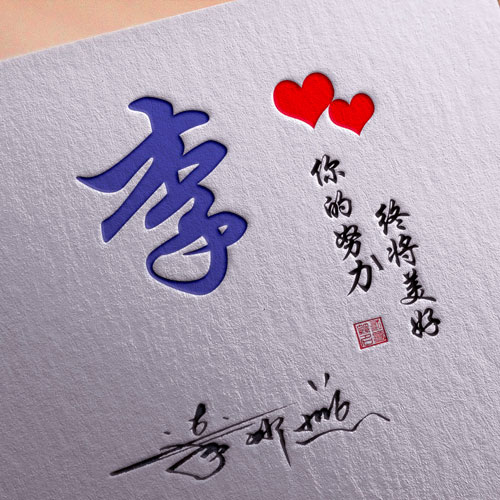 李
你的努力
终将美好